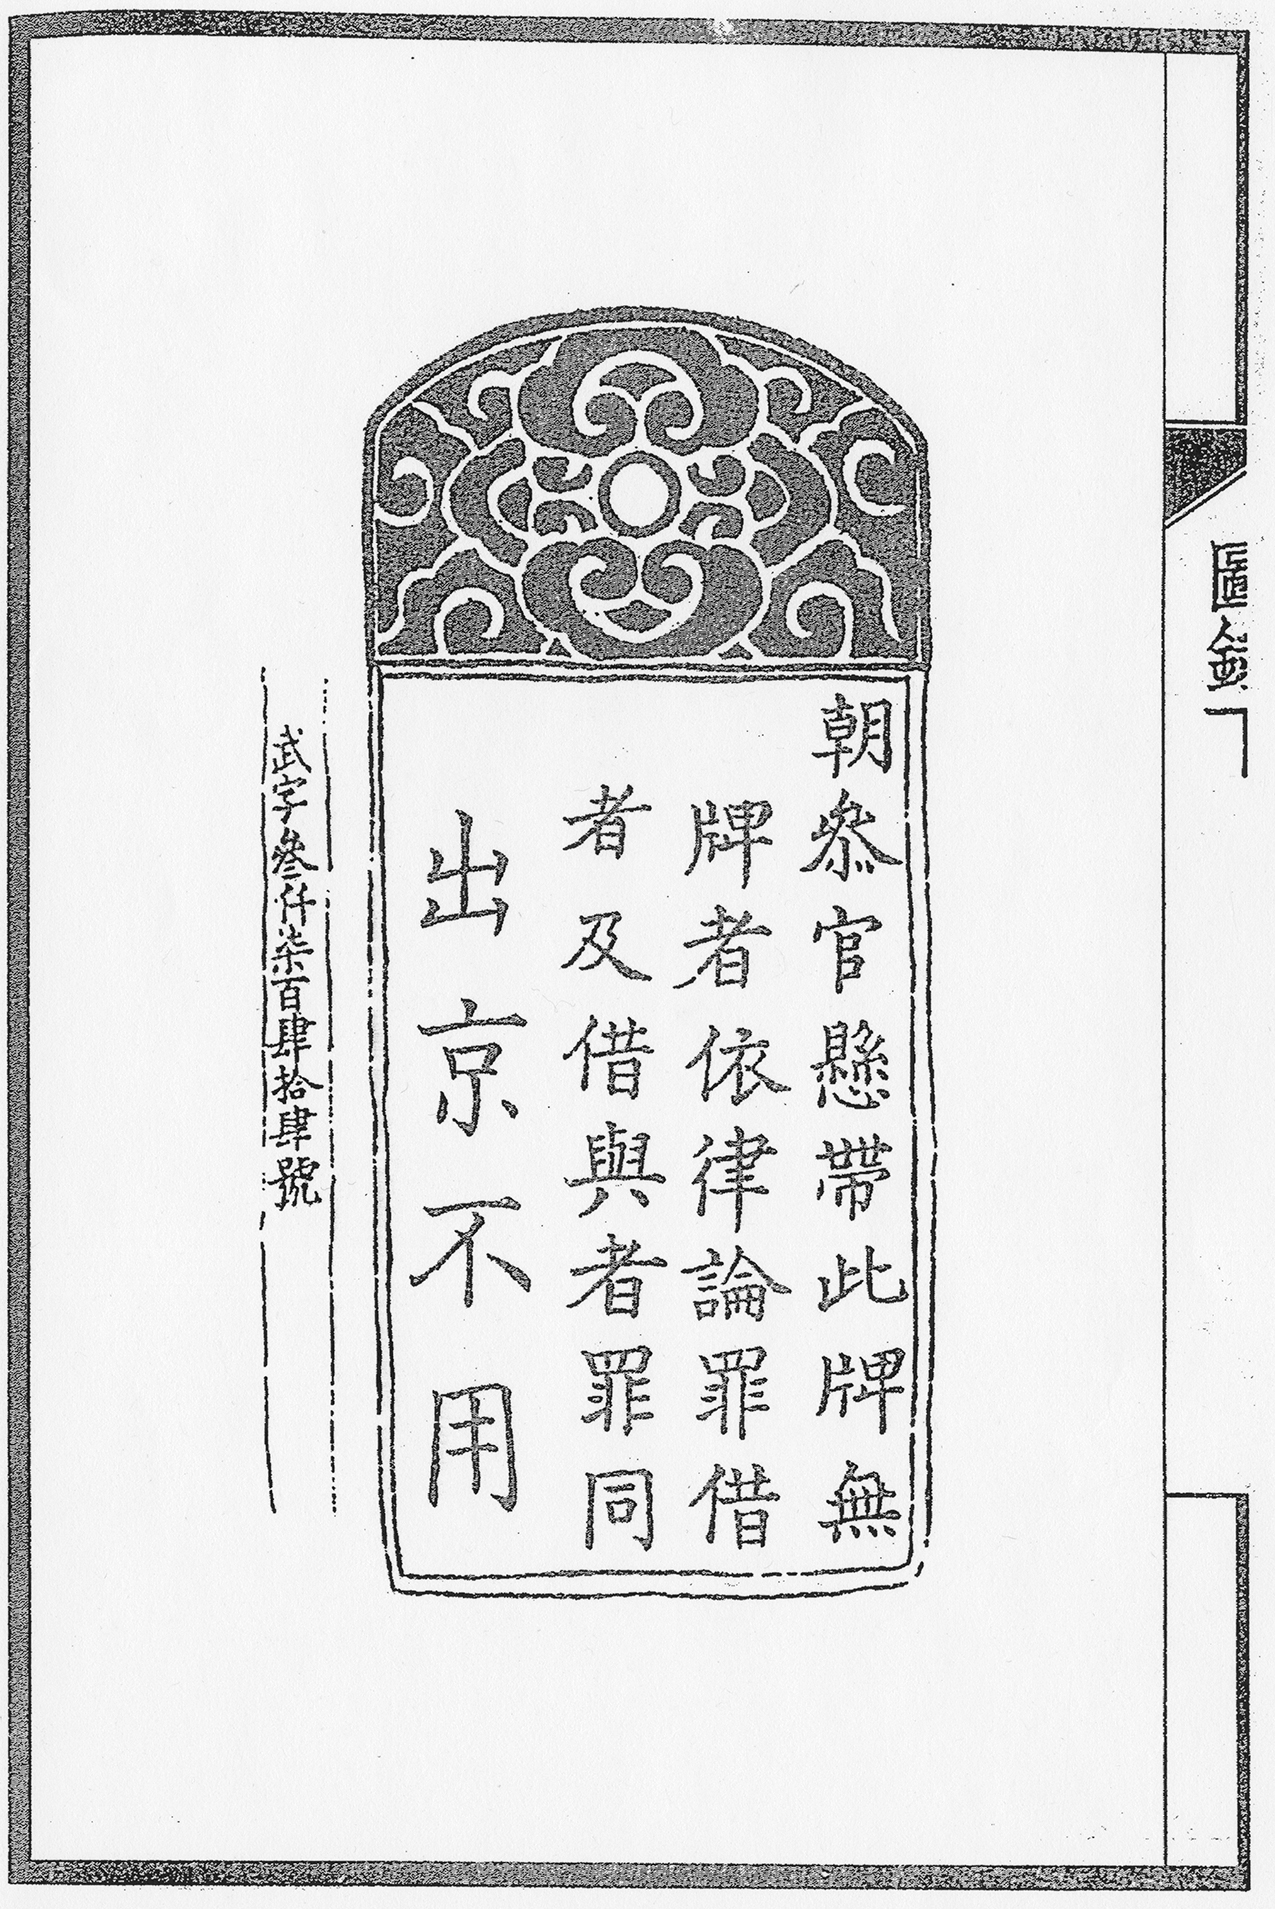 朝叅官懸帶此牌無
牌者依律論罪借
者及借與者罪同
出京不用
武字叄仟柒百肆拾肆號